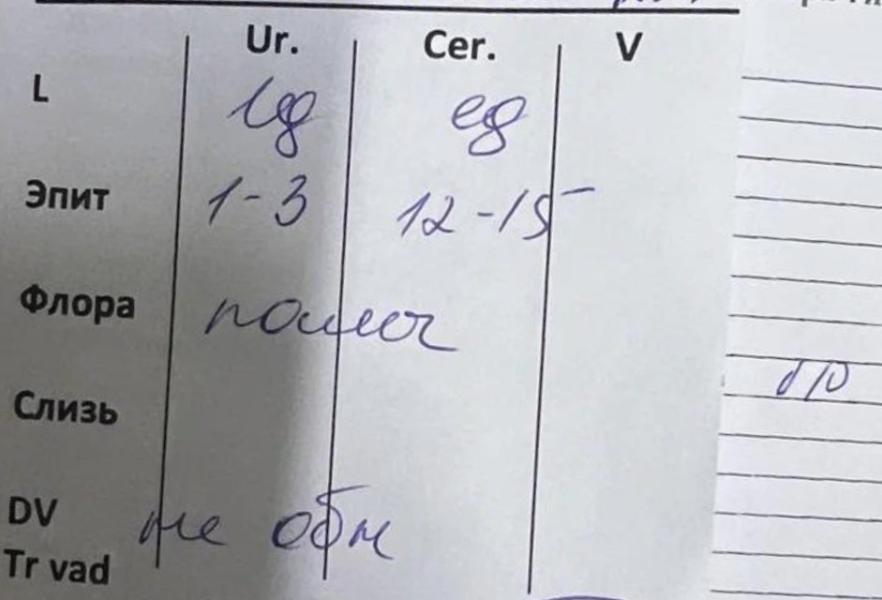 Ur. Cer. V
L ед ед
Эпит 1-3 12-15
Флора палоч
Слизь
DV не обн
Tr vad
б/о